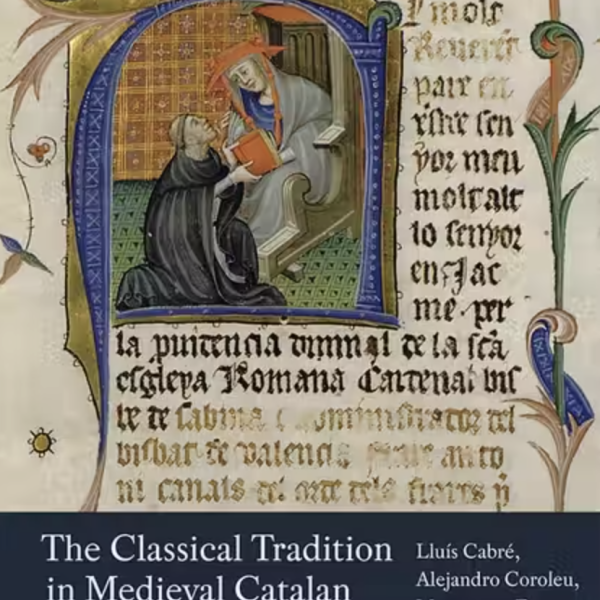 l molt
Reuerēt
pare en
xp̄ist sen
yor meu
molt alt
lo senyor
en Jac
me. per
la prouidencia diuinal de la sc̄a
esgleya Romana Cardenal bis
be de sabina administrador del
bisbat de valencia frare anto
ni canals del orde dels frares p̄
The Classical Tradition
in Medieval Catalan
Lluís Cabré,
Alejandro Coroleu,